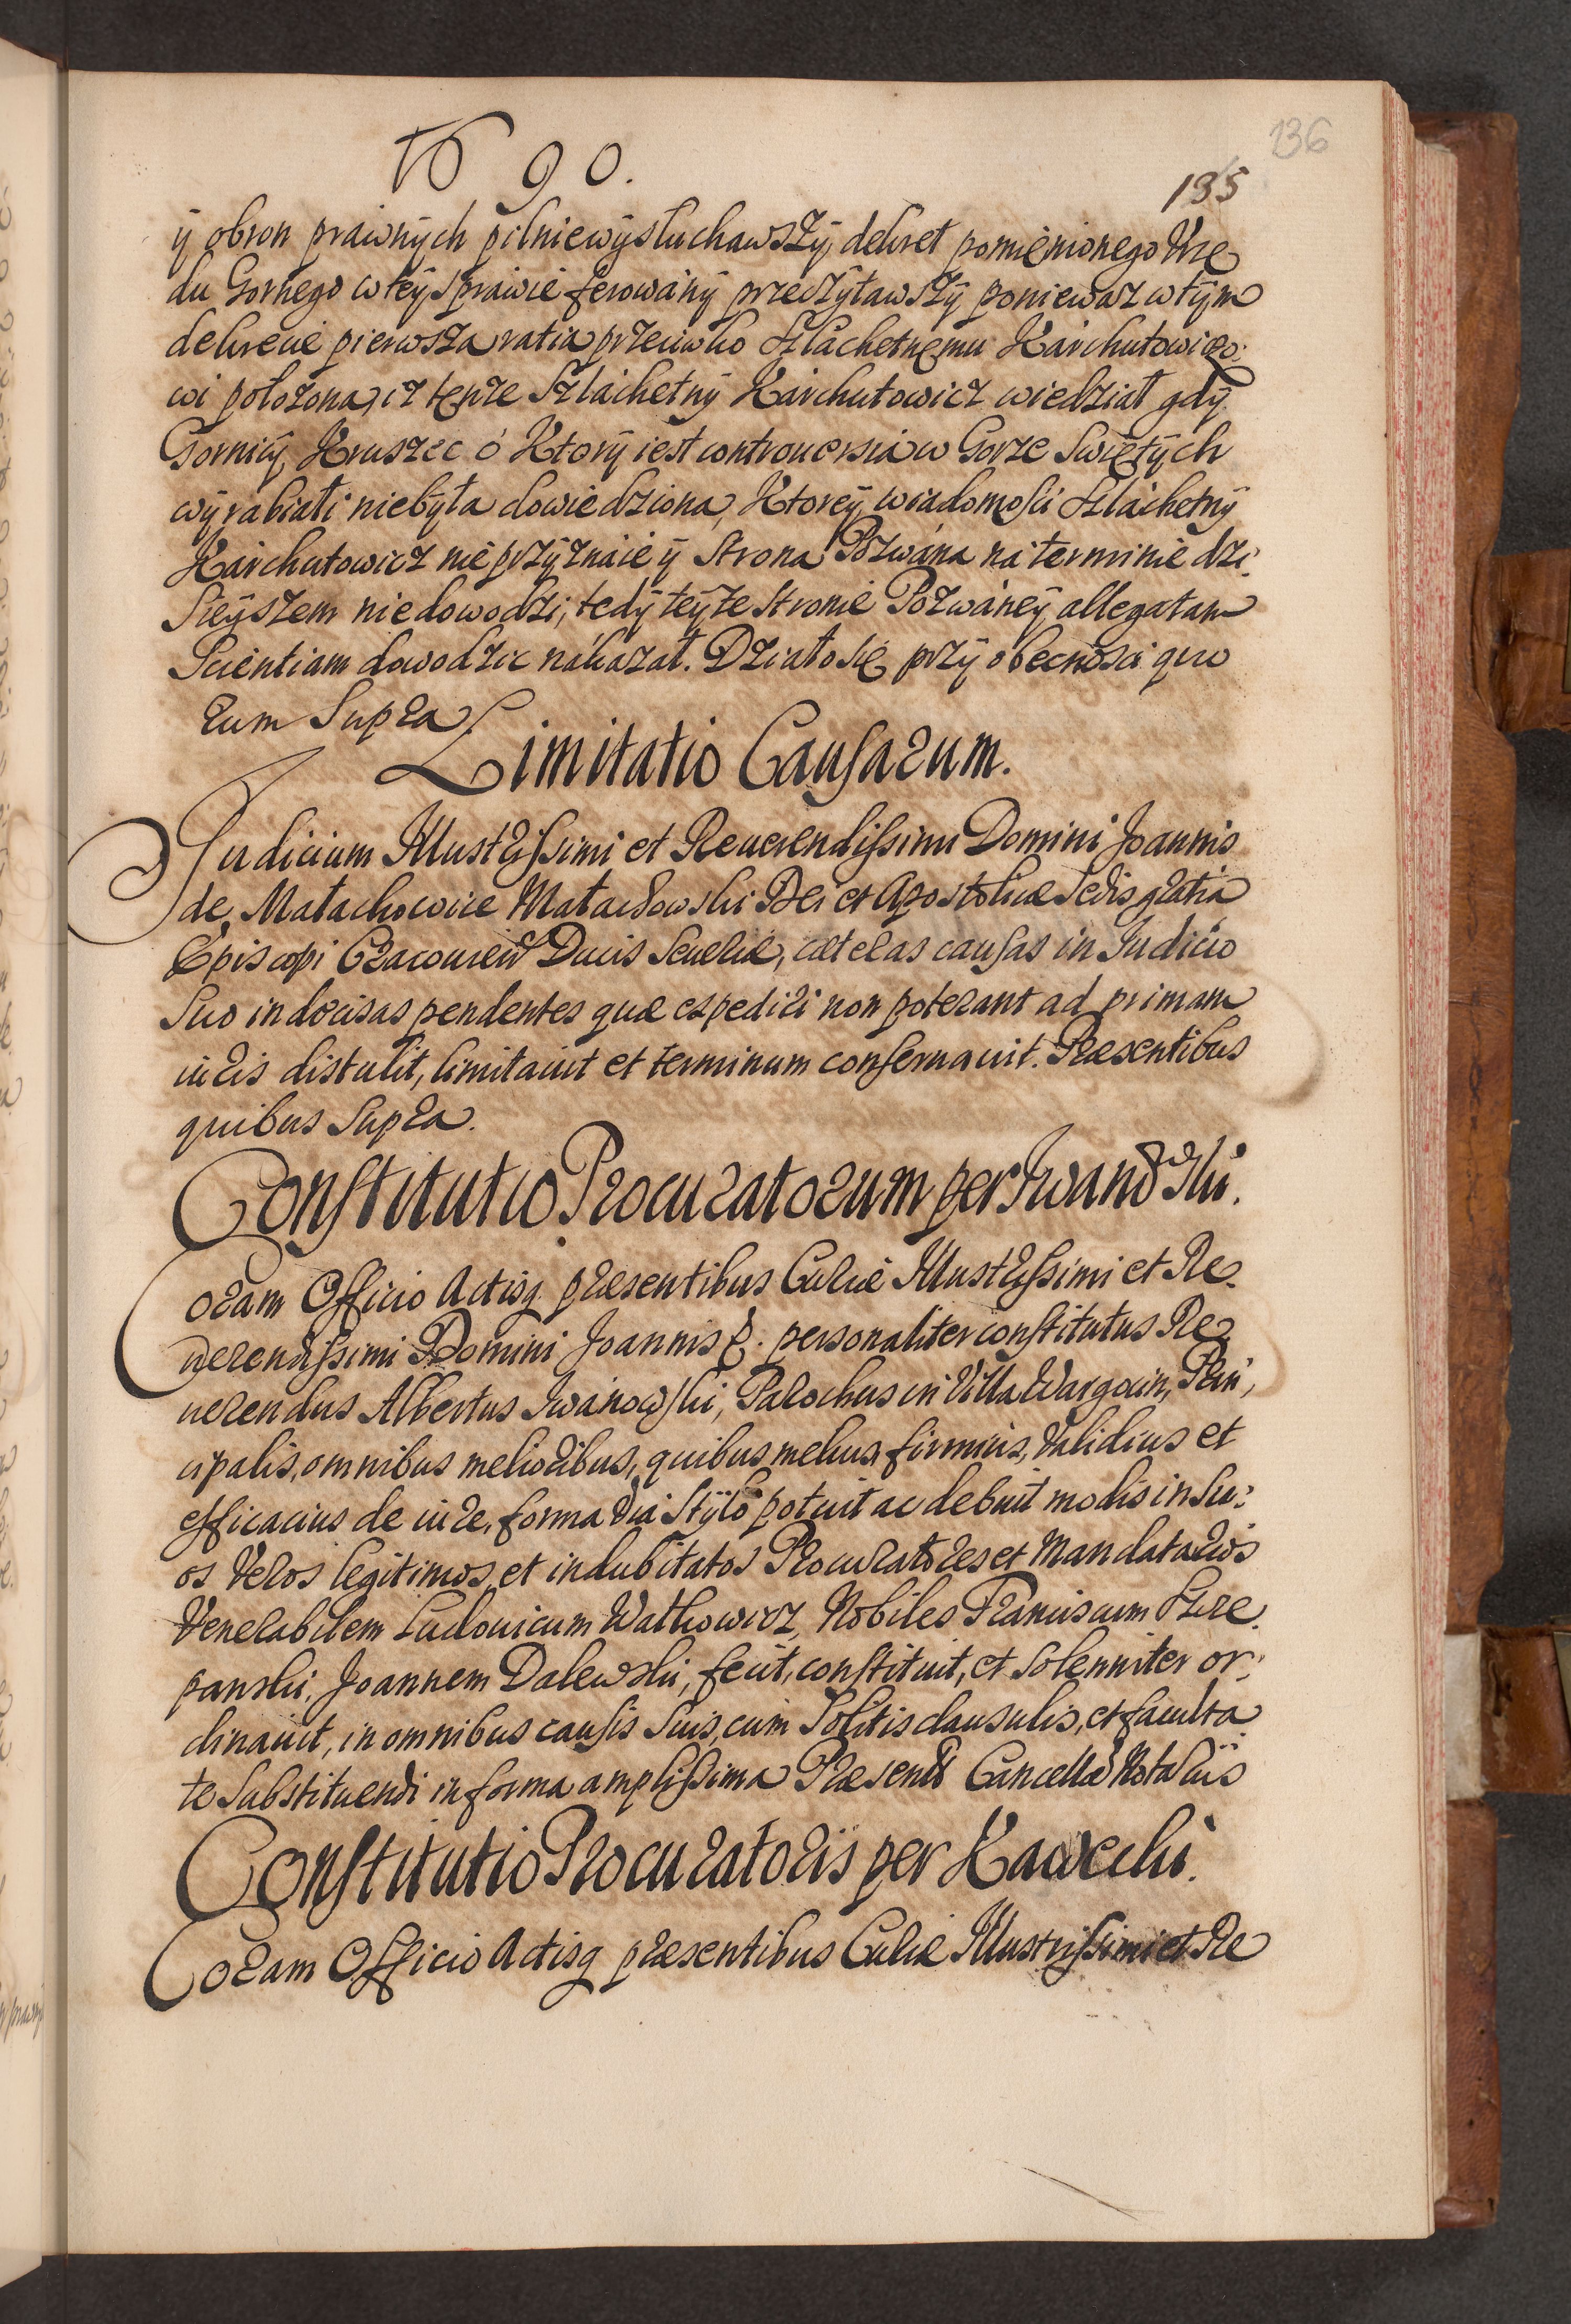 1690.
136
135
ÿ obron prawnÿch pilnie wÿsłuchawszÿ, dekret pomięnionego Vrzę
du Gornego wteÿ sprawie ferowánÿ przeczÿtawszÿ poniewasz wtÿm
dekrecie pierwsza ratia przeciwko Szlachetnęmu Karchutowiczo:
wi położona, iż tęnże Szlachetnÿ Karchutowicz wiedział gdÿ
Gornicÿ Kruszec o Ktorÿ iest controuersia w Gorze Swiętÿch
wÿrabiali niebÿła dowiedziona, Ktoreÿ wiadomości Szlachetnÿ
Karchutowicz nie przÿznaie ÿ Strona Pozwána na terminie dzi:
sieÿszem niedowodzi; tedÿ teÿże stronie Pozwáneÿ allegatam
Scientiam dowodzic nakazał. Działo się przÿ obecnosci quo
rum Supra.
Limitatio Causarum.
Judicium Illustrissimi et Reuerendissimi Domini Joannis
de Małachowice Małachowski Dei et Apostolicæ Sedis gratia
Episcopi Cracouien Ducis Seueriæ, cæteras causas in Judicio
Suo indecisas pendentes quæ expediri non poterant ad primam
iuris distulit, limitauit et terminum conseruauit. Præsentibus
quibus Supra.
Constitutio Procuratorum per Iwanowski.
Coram Officio Actisq præsentibus Curiæ Illustrissimi et Re
uerendissimi Domini Joannis p. personaliter constitutus Re
uerendus Albertus Iwanowski, Parochus in Villa Wargocin, Prin,
cipalis, omnibus melioribus, quibus melius, firmius, Validius et
efficacius de iure, forma Via Stÿlo potuit ac debuit modis in Su:
os Veros legitimos, et indubitatos Procuratores et Mandatarios
Venerabilem Ludouicum Watkowicz, Nobiles Franciscum Szcze
panski, Joannem Dalewski, fecit, constituit, et solenniter or:
dinauit, in omnibus causis Suis, cum Solitis clausulis, et faculta
te Substituendi in forma amplissima Præsentibus Cancellæ Notariis
Constitutio Procuratoris per Kawecki.
Coram Officio Actisq præsentibus Curiæ Illustrissimi et Re